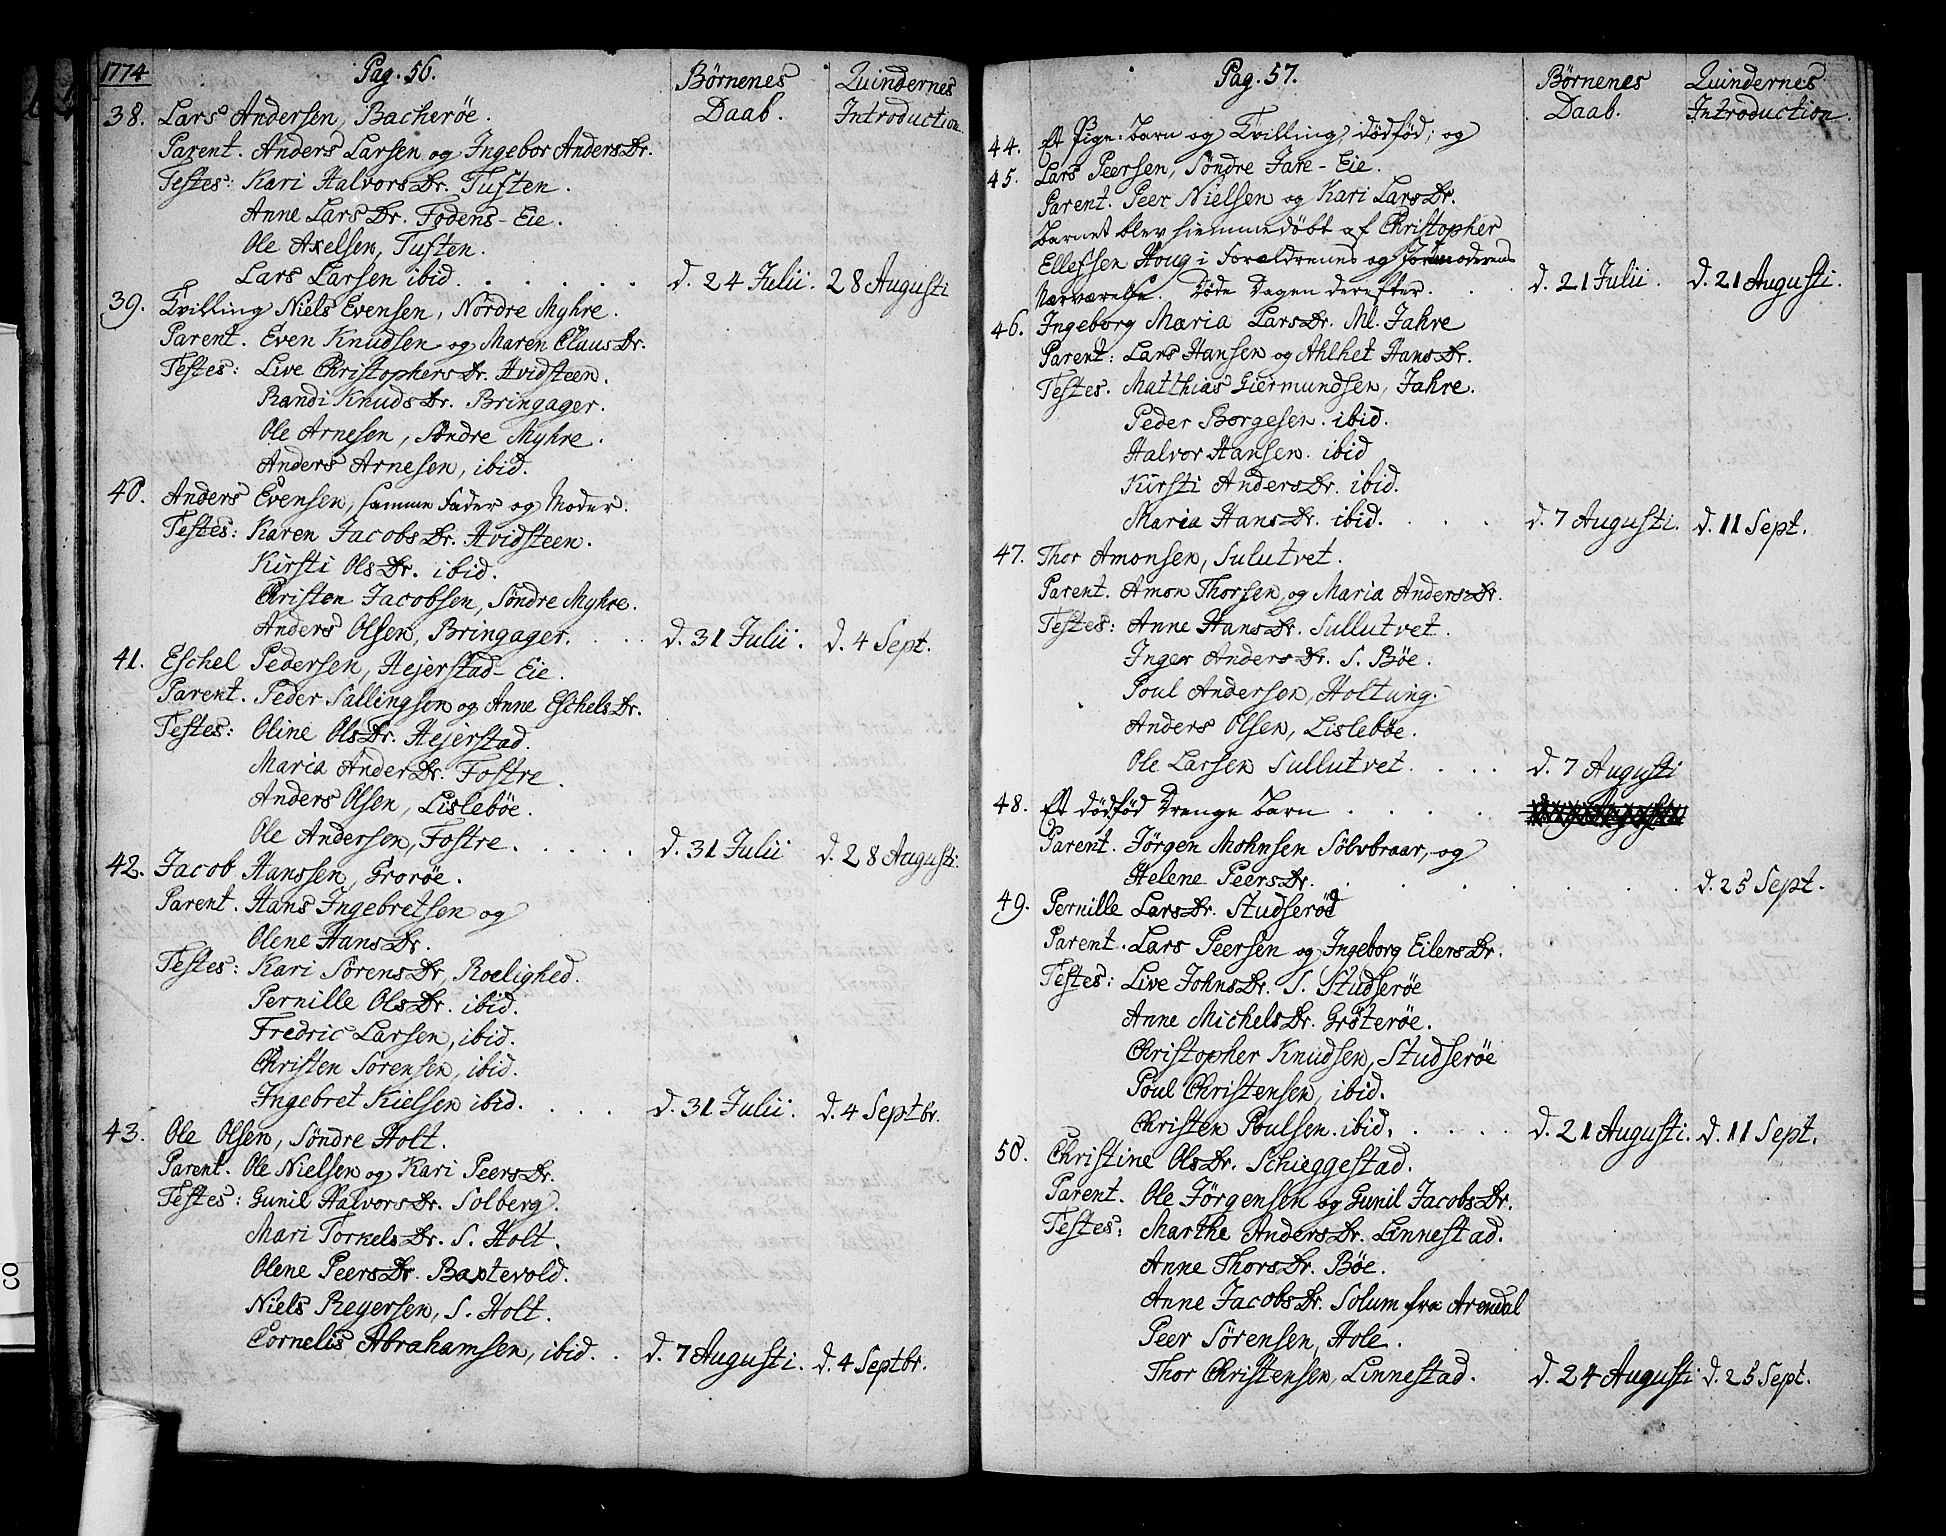 1774 Pag. 56. Børnenes Daab. Quindernes Introduction
38. Lars Andersen, Bacherøe.
Parent. Anders Larsen og Ingebor Anders Dr.
Testes: Kari Halvors Dr. Tuften.
Anne Lars Dr. Fodens-Eie.
Ole Axelsen, Tuften.
Lars Larsen ibid. . . . . . . d. 24 Julii. 28 Augusti
39. Tvilling Niels Evensen, Nordre Myhre.
Parent. Even Knudsen og Maren Claus Dr.
Testes: Live Christophers Dr. Hvidsteen.
Randi Knuds Dr. Bringager.
Ole Arnesen, Søndre Myhre.
Anders Arnesen, ibid.
40. Anders Evensen, samme Fader og Moder.
Testes: Karen Jacobs Dr. Hvidsteen.
Kirsti Ols Dr. ibid.
Christen Jacobsen, Søndre Myhre.
Anders Olsen, Bringager. . . . d. 31 Julii. d. 4 Sept.
41. Eschel Pedersen, Hejerstad-Eie.
Parent. Peder Sallingsen og Anne Eschels Dr.
Testes: Oline Ols Dr. Hejerstad.
Maria Ander Dr. Fostre.
Anders Olsen, Lislebøe.
Ole Andersen, Fostre. . . . . . d. 31 Julii d. 28 Augusti.
42. Jacob Hanssen, Grorøe.
Parent. Hans Ingebretsen og
Olene Hans Dr.
Testes: Kari Sørens Dr, Roelighed.
Pernille Ols Dr. ibid.
Fredric Larsen, ibid.
Christen Sørensen, ibid.
Ingebret Kielsen ibid. . . . . d. 31 Julii. d. 4 Septbr.
43. Ole Olsen, Søndre Holt.
Parent. Ole Nielsen og Kari Peers Dr.
Testes: Gunil Halvors Dr. Solberg.
Mari Torkels Dr. S. Holt.
Olene Peers Dr. Baptevold.
Niels Regersen, S. Holt.
Cornelis Abrahamsen, ibid. . . d. 7 Augusti. d. 4 Septbr.
Pag. 57. Børnenes Daab. Quindernes Introduction.
44. Et Pige-barn og Tvilling, dødfød; og
45. Lars Peersen, Søndre Jare-Eie.
Parent. Peer Nielsen og Kari Lars Dr.
Barnet blev hiemmedøbt af Christopher
Ellefsen Houg i Forældrenes og Jordmoderens
Nærværelse. Døde Dagen derefter. . . d. 21 Julii. d. 21 Augusti.
46. Ingeborg Maria Lars Dr. Ml. Jahre
Parent: Lars Hansen og Ahlhet Hans Dr.
Testes. Matthias Giermundsen, Jahre.
Peder Borgesen. ibid.
Halvor Hansen. ibid
Kirsti Anders Dr. ibid.
Maria Hans Dr. ibid. . . . d. 7 Augusti. d. 11 Sept.
47. Thor Amonsen, Sulutvet.
Parent. Amon Thorsen, og Maria Anders Dr.
Testes: Anne Hans Dr. Sullutvet.
Inger Anders Dr. S. Bøe.
Poul Andersen, Holtung.
Anders Olsen, Lislebøe.
Ole Larsen Sullutvet. . . . d. 7 Augusti
48. Et dødfød Drenge barn . . . .
Parent. Jørgen Mohnsen Sølvbraar, og
Helene Peers Dr. . . . . . . . d. 25 Sept.
49. Pernille Lars Dr. Studserød
Parent. Lars Peersen og Ingeborg Eilers Dr.
Testes: Live Johns Dr. S. Studserøe
Anne Michels Dr. Grøterøe.
Christopher Knudsen, Studserøe
Poul Christensen, ibid.
Christen Poulsen. ibid. . . . . d. 21 Augusti. d. 11 Sept.
50. Christine Ols Dr. Schieggestad.
Parent. Ole Jørgensen og Gunil Jacobs Dr.
Testes: Marthe Anders Dr. Linnestad.
Anne Thors Dr. Bøe.
Anne Jacobs Dr. Solum fra Arendal
Peer Sørensen, Hole.
Thor Christensen, Linnestad. d. 24 Augusti d. 25 Sept.